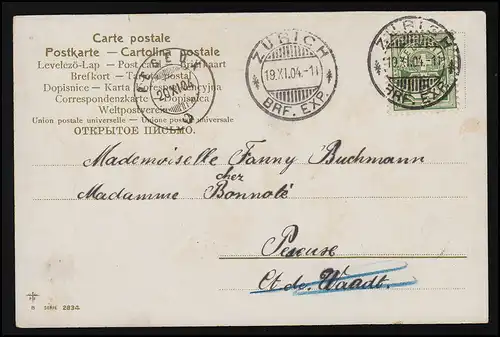 Carte postale
Postkarte — Cartolina postale
Levelező-Lap — Post card — Briefkaart
Brefkort — Tarjeta postal
Dopisnice — Karta Korespondencyjna
Correspondenzkarte — Dopisnica
Weltpostverein
Union postale universelle — Unione postale universale
ОТКРЫТОЕ ПИСЬМО.
ZÜRICH
19.XI.04.-11
BRF. EXP.
ZÜRICH
19.XI.04.-11
BRF. EXP.
Mademoiselle Fanny Buchmann
chez
Madamme Bonnolé
Peseuse
Ct de Waadt.
SERIE 283